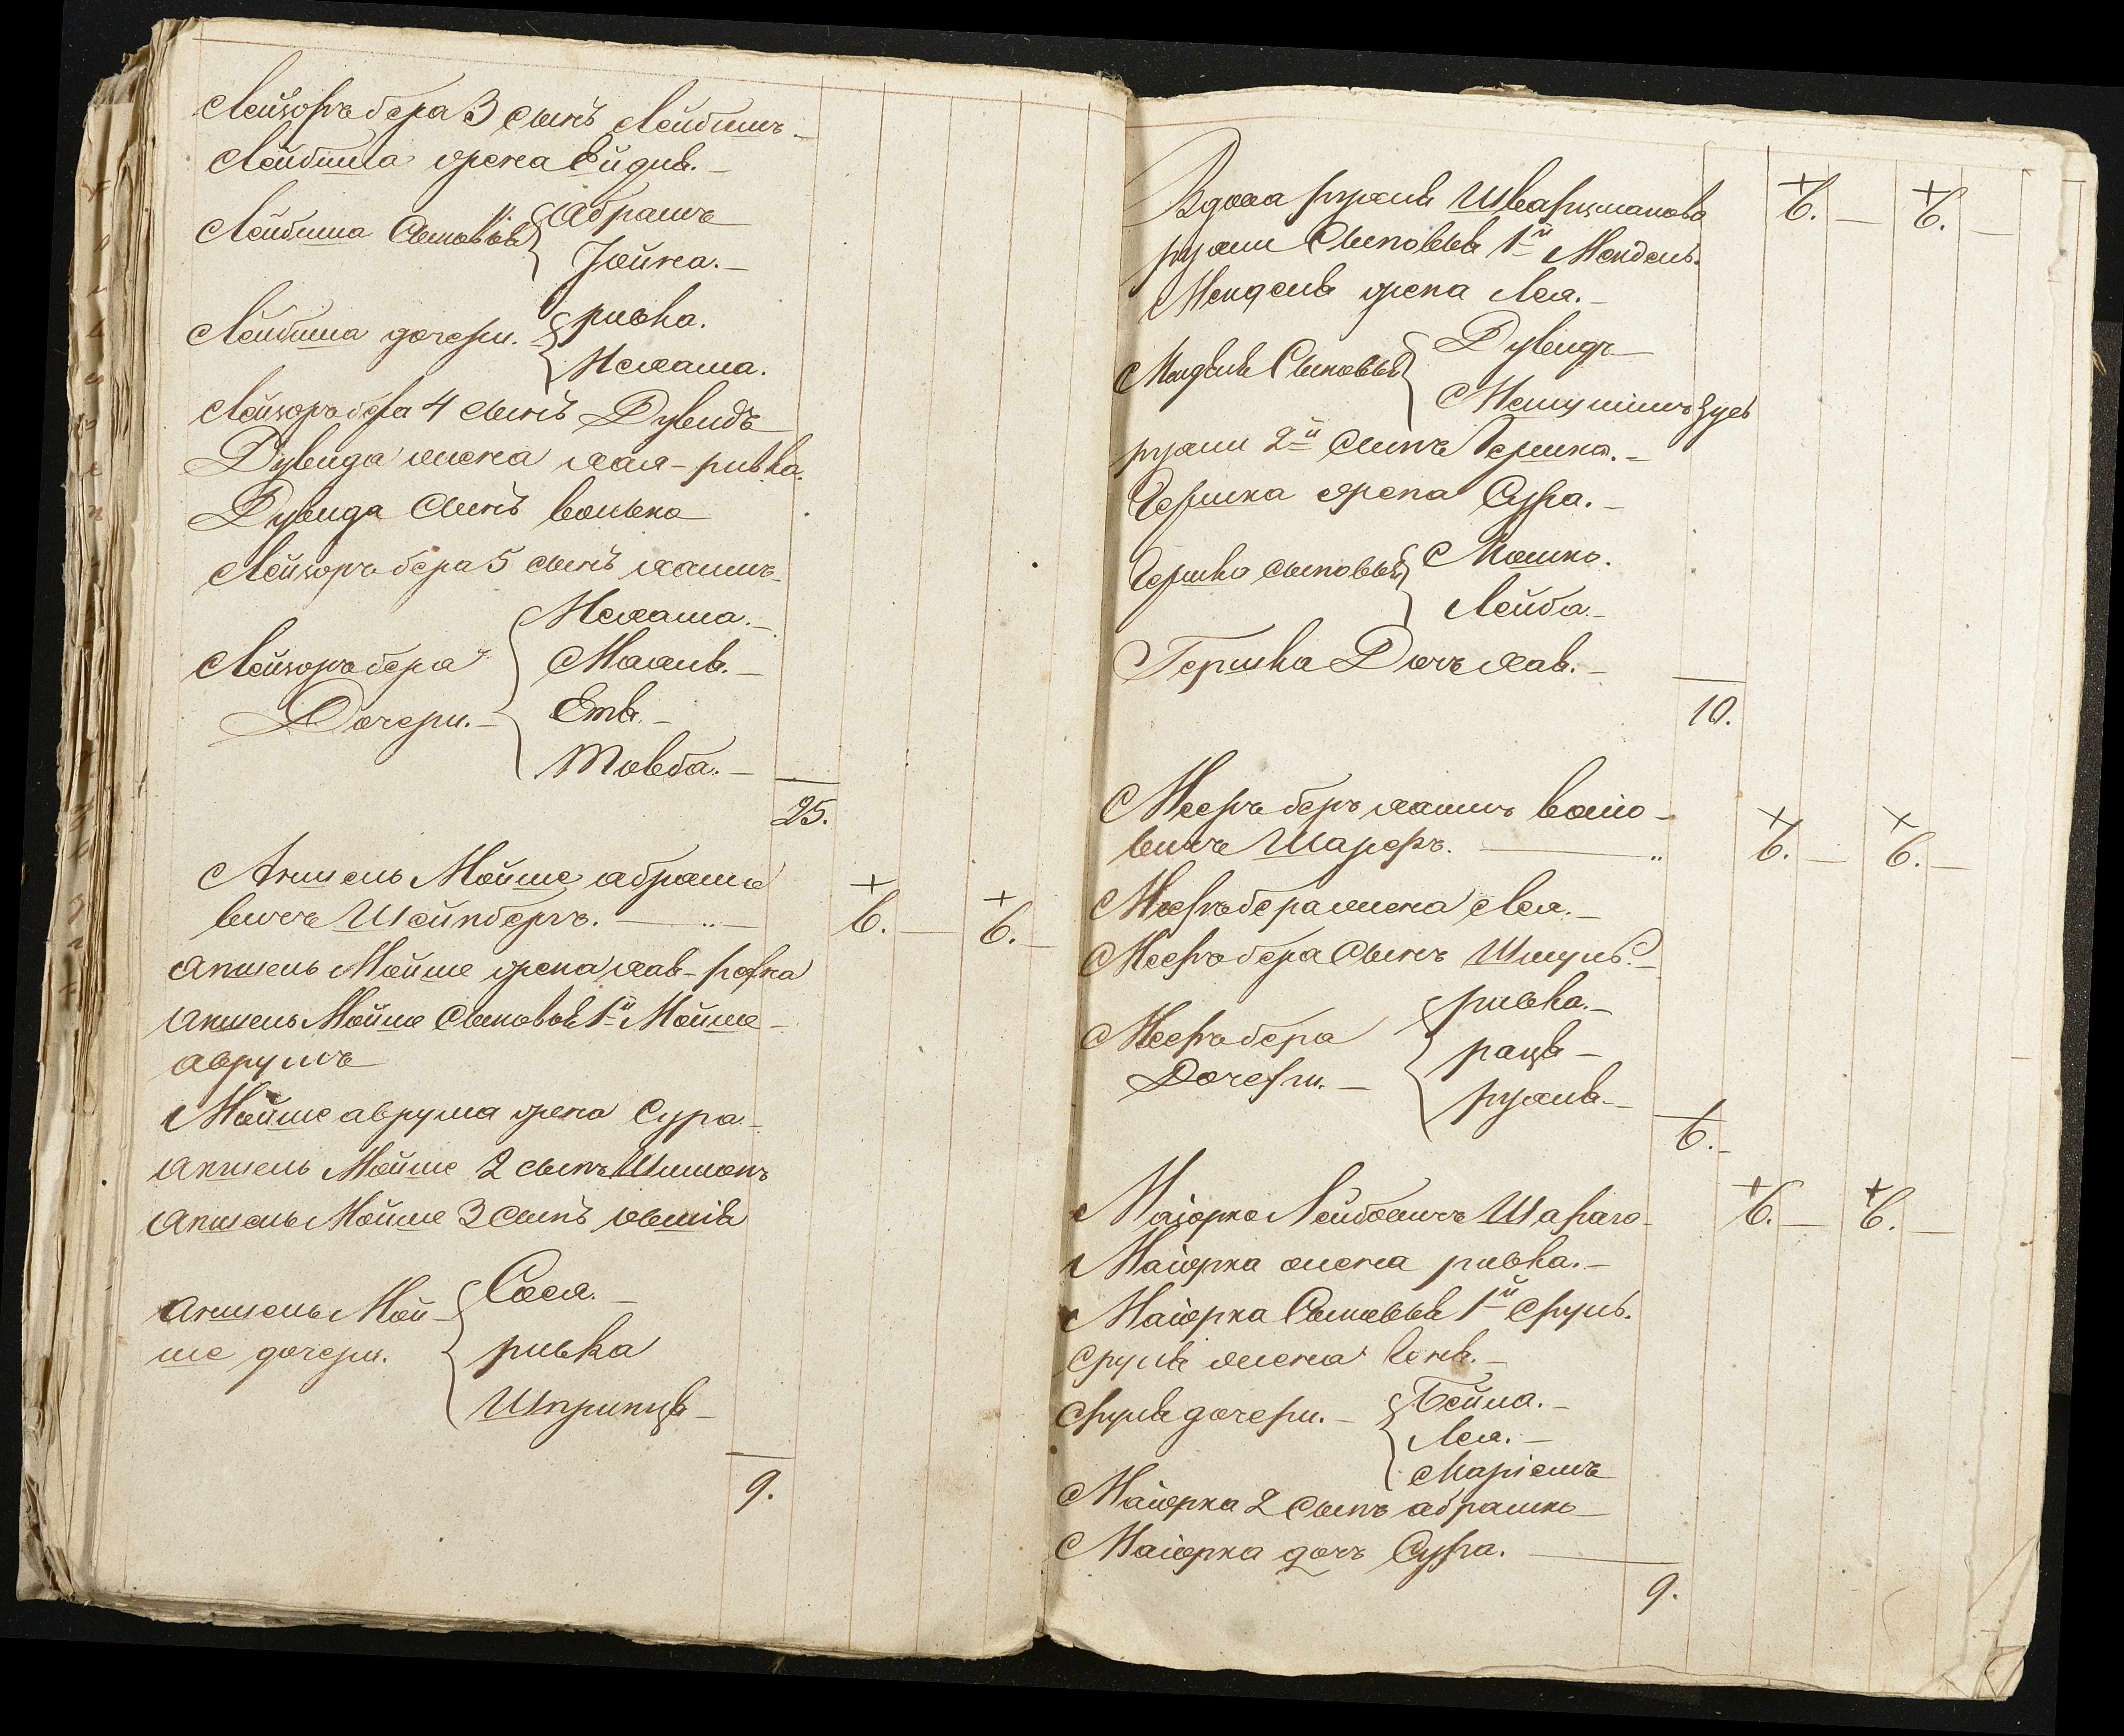 Лейзоръ бера 3 сынъ Лейбишъ
Лейбиша жена Ейдль.
Лейбиша Сыновья Абрамъ
Іойна.
Лейбиша дочери. ривка.
Нехама.
Лейзоръ бера 4 сынъ Дувидъ
Дувида жена хая-ривка.
Дувида Сынъ волько
Лейзоръ бера 5 сынъ хаимъ
Нехама.
Лейзоръ бера Маля.
Дочери. Етя.
Товба.
25.
Аншель Мойше абрамо
вичъ Шейнбергъ. 6. 6.
аншель Мойше жена хая-рохла
аншель Мойше Сыновья 1й Мойше
аврумъ
Мойше аврума жена Сура.
аншель Мойше 2 сынъ Шимонъ
аншель Мойше 3 сынъ
Сося.
аншель Мой
ше дочери. ривка
Шпринця
9.
Вдова рухля Шварцманова 6. 6.
рухли Сыновья 1й Мендель.
Мендель жена Лея.
Мендель Сыновья Дувидъ
рухли 2й Сынъ Гершко.
Гершка жена Сура.
Гершко сыновья Мошко.
Лейба.
Гершка Дочь хая.
10.
Мееръ беръ хаимъ
вичъ 6. 6.
Мееръ бера жена Лея.
Мееръ бера Сынъ Шмуль.
ривка.
Мееръ бера
Дочери. рухля.
6.
Маіорко Лейбовичъ Шараго 6. 6.
Маіорка жена ривка.
Маіорка Сыновья 1й Сруль.
Сруля жена
Сруля дочери. Бейла.
Лея.
Маріемъ
Маіорка 2 Сынъ абрамко
Маіорка дочь Сура.
9.